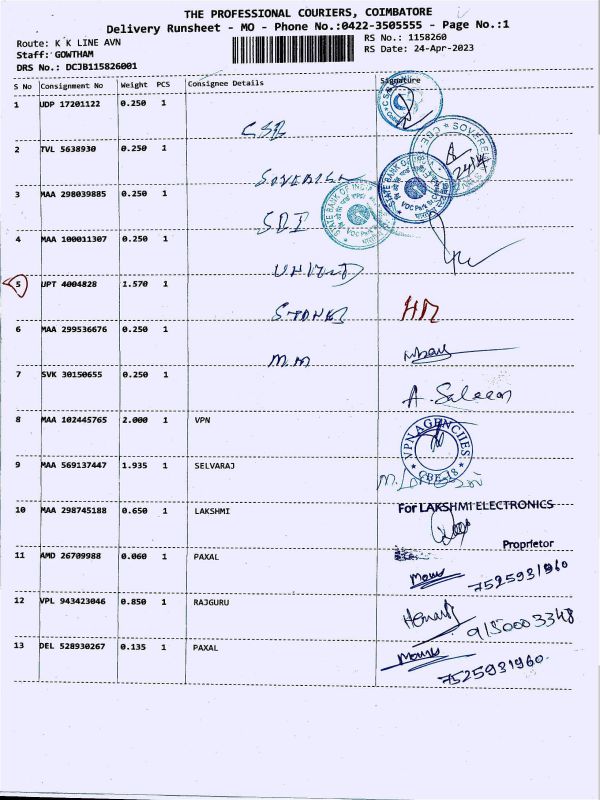 THE PROFESSIONAL COURIERS, COIMBATORE
Delivery Runsheet - MO - Phone No.:0422-3505555 - Page No.:1
Route: K K LINE AVN
RS No.: 1158260
Staff: GOWTHAM
RS Date: 24-Apr-2023
DRS No.: DCJB115826001
S No Consignment No Weight PCS Consignee Details Signature
1 UDP 17201122 0.250 1
CSB
2 TVL 5638930 0.250 1
3 MAA 298039885 0.250 1
SBI
STATE BANK OF INDIA
4 MAA 100011307 0.250 1
UNITED
5 UPT 4004828 1.570 1
HM
6 MAA 299536676 0.250 1
MM
7 SVK 30150655 0.250 1
A. Saleem
8 MAA 102445765 2.000 1 VPN
VPN AGENCIES
CBE-18
9 MAA 569137447 1.935 1 SELVARAJ
10 MAA 298745188 0.650 1 LAKSHMI
For LAKSHMI ELECTRONICS
Proprietor
11 AMD 26709988 0.060 1 PAXAL
7525931960
12 VPL 943423046 0.850 1 RAJGURU
9150003348
13 DEL 528930267 0.135 1 PAXAL
7525931960